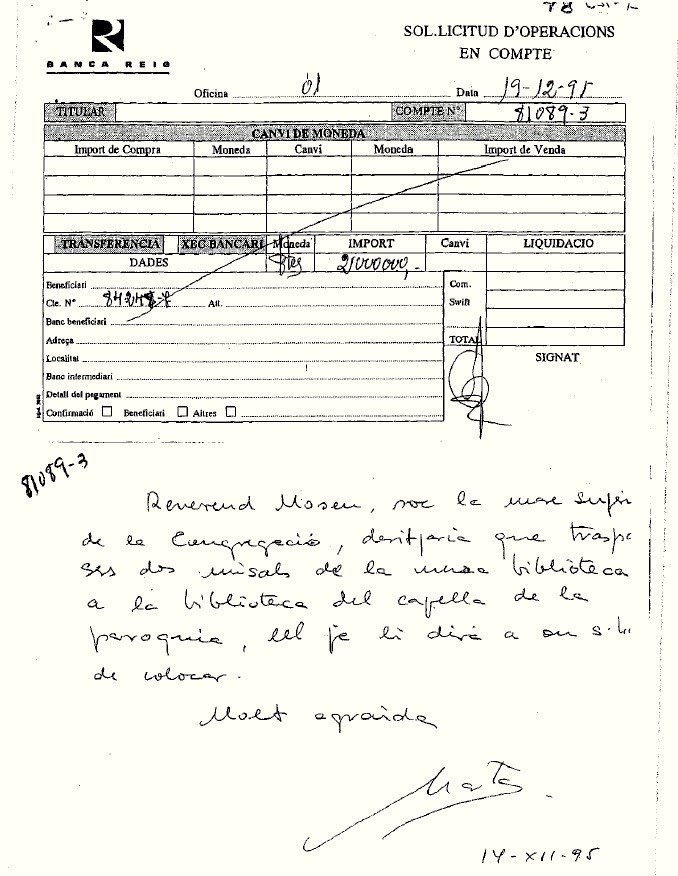 BANCA REIG
SOL.LICITUD D'OPERACIONS
EN COMPTE
Oficina 01 Data 19-12-95
TITULAR COMPTE Nº 81089-3
CANVI DE MONEDA
Import de Compra Moneda Canvi Moneda Import de Venda
TRANSFERENCIA XEC BANCARI Moneda IMPORT Canvi LIQUIDACIO
DADES Ptes 2000000,-
Beneficiari Com.
Cte. Nº Att. Swift
Banc beneficiari
Adreça TOTAL
Localitat SIGNAT
Banc intermediari
Detall del pagament
Confirmació Beneficiari Altres
81089-3
Reverend Mosen, soc la mare Super
de la Congregació, desitjaria que traspa
ses dos misals de la meva biblioteca
a la biblioteca del capella de la
paroquia, ell ja li dirá a on s'ha
de colocar.
Molt agraida
Marta
14-XII-95